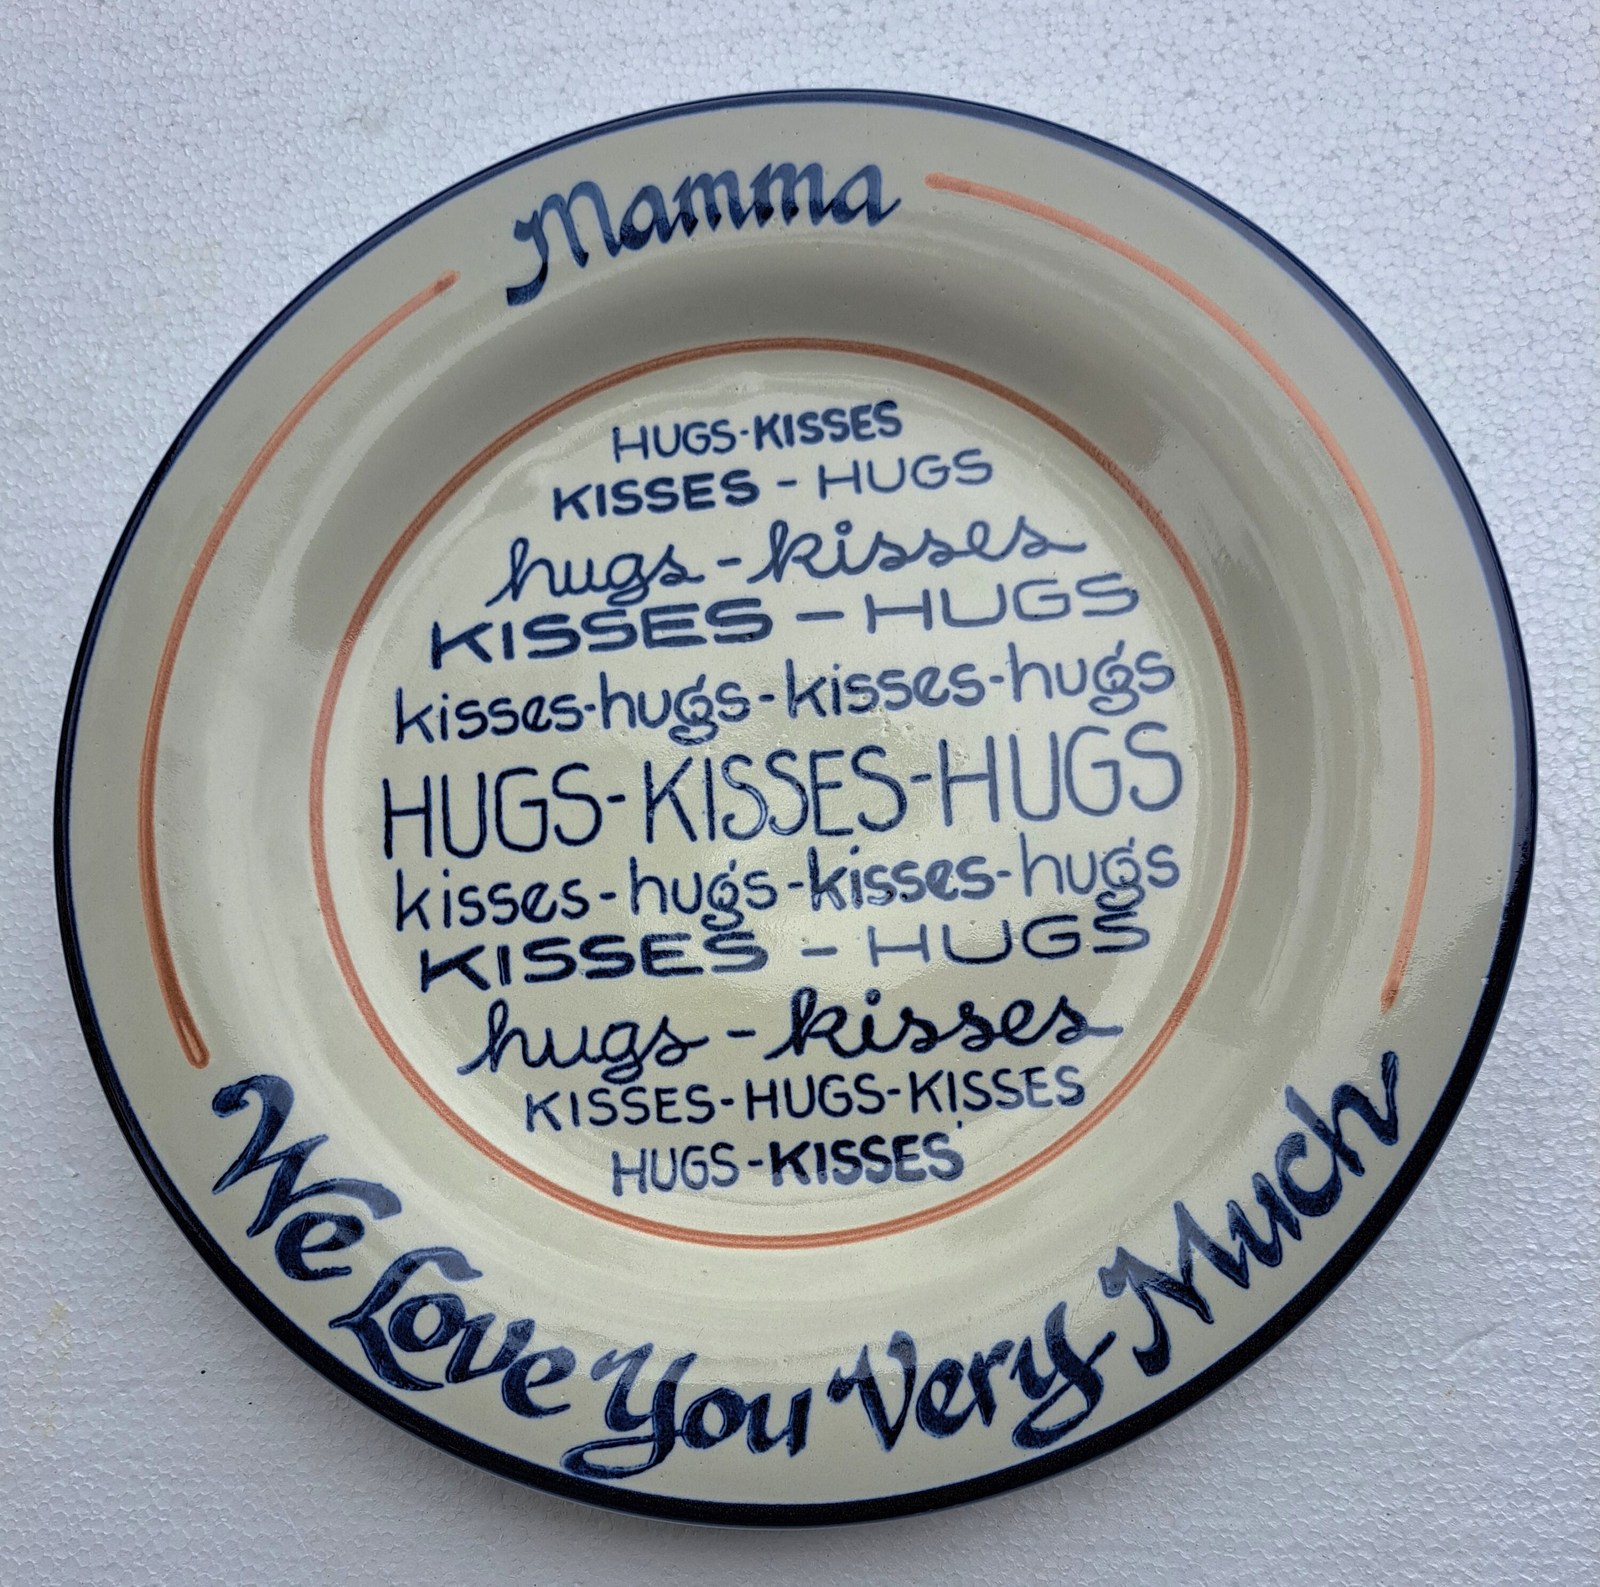 Mamma
HUGS-KISSES
KISSES - HUGS
hugs - kisses
KISSES - HUGS
kisses-hugs-kisses-hugs
HUGS-KISSES-HUGS
kisses-hugs-kisses-hugs
KISSES - HUGS
hugs - kisses
KISSES-HUGS-KISSES
HUGS-KISSES
We Love You Very Much